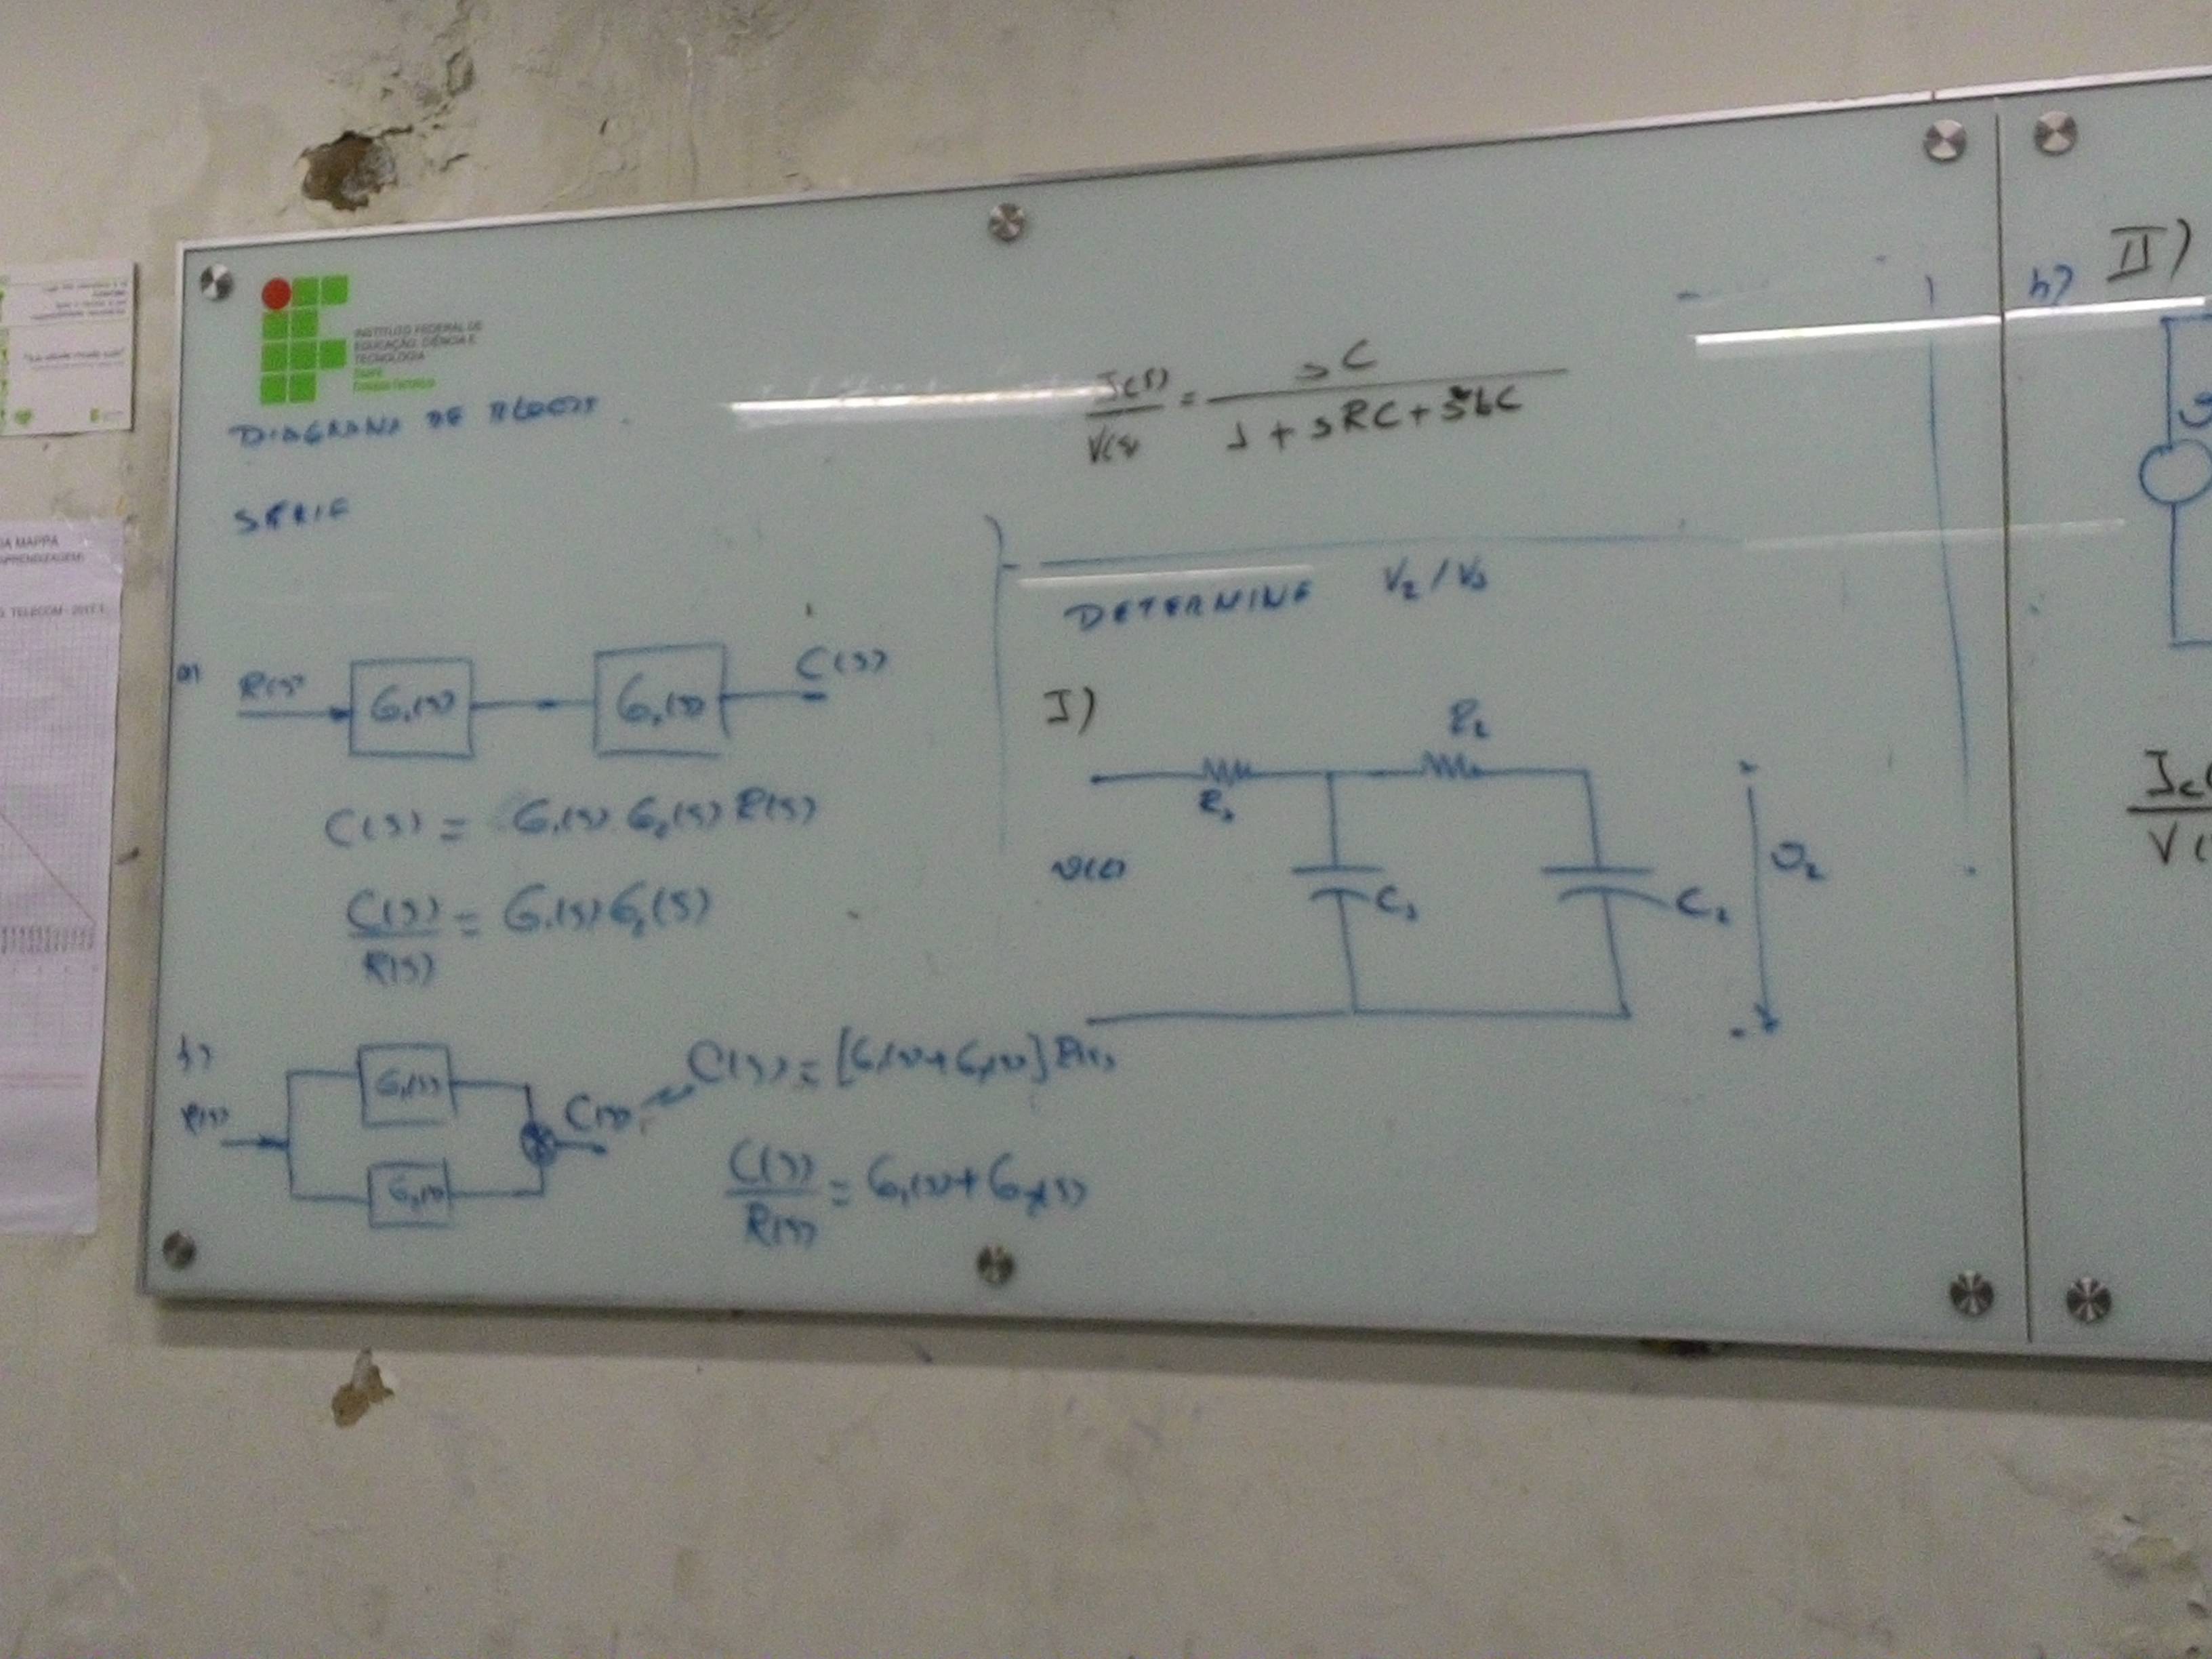 INSTITUTO FEDERAL DE
EDUCAÇÃO, CIÊNCIA E
TECNOLOGIA
DIAGRAMA DE BLOCOS
SÉRIE
a)
R(s)
G₁(s)
G₂(s)
C(s)
C(s) = G₁(s) G₂(s) R(s)
C(s)/R(s) = G₁(s) G₂(s)
b)
R(s)
G₁(s)
G₂(s)
C(s)
C(s) = [G₁(s) + G₂(s)] R(s)
C(s)/R(s) = G₁(s) + G₂(s)
I(s)/V(s) = sC / (1 + sRC + s²LC)
DETERMINE V₂/V₁
I)
R₁
R₂
v(t)
C₁
C₂
v₂
b) II)
MAPPA
TELECOM - 2017.1